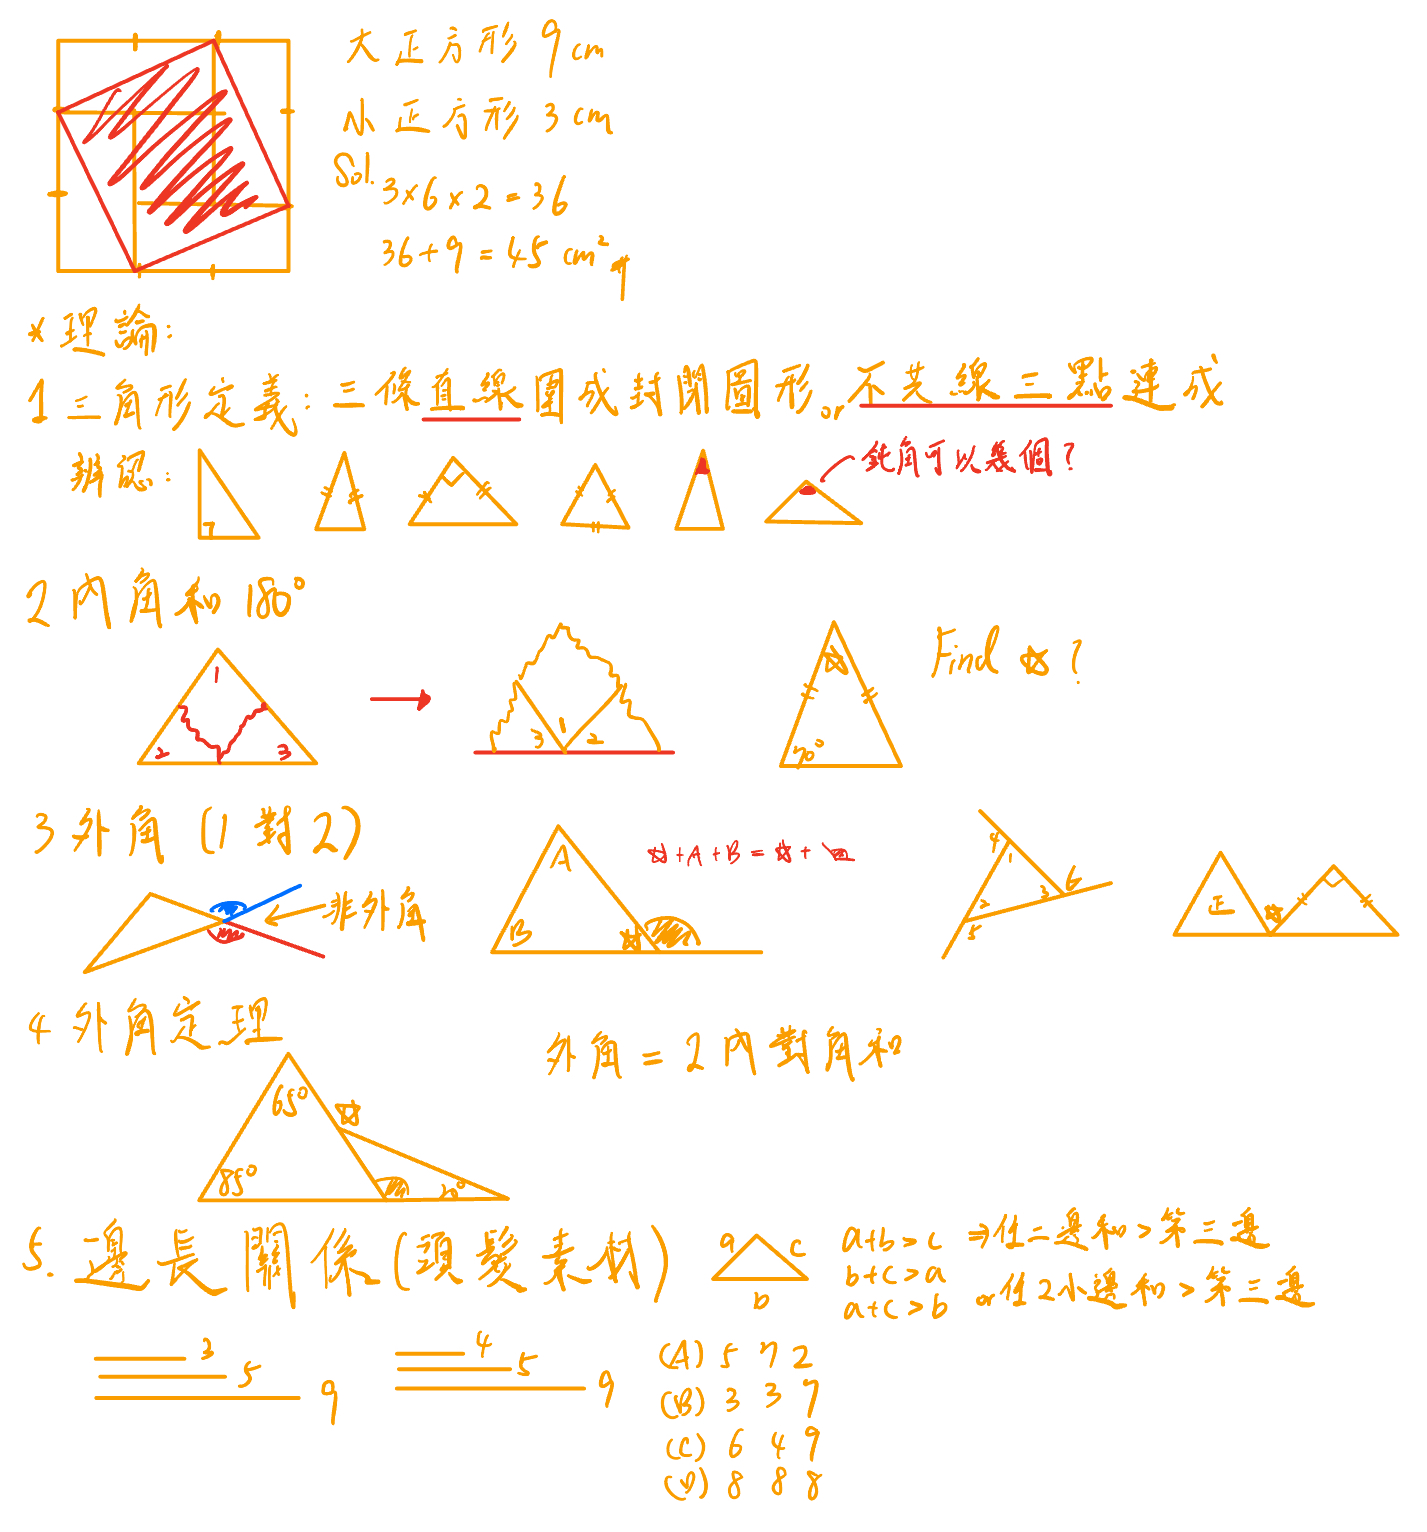 大正方形 9 cm
小正方形 3 cm
Sol.
3×6×2=36
36+9=45 cm²
*理論:
1 三角形定義: 三條直線圍成封閉圖形 or 不共線三點連成
辨認:
鈍角可以幾個?
2 內角和 180°
1
2 3
3 1 2
70°
Find ☆ ?
3 外角 (1對2)
非外角
A
B
☆+A+B=☆+
4
1
2 3 6
5
正
4 外角定理
外角=2內對角和
65°
85°
20°
5. 邊長關係(頭髮素材)
a c
b
a+b>c ⇒任二邊和>第三邊
b+c>a
a+c>b or 任2小邊和>第三邊
3
5
9
4
5
9
(A) 5 7 2
(B) 3 3 7
(C) 6 4 9
(D) 8 8 8